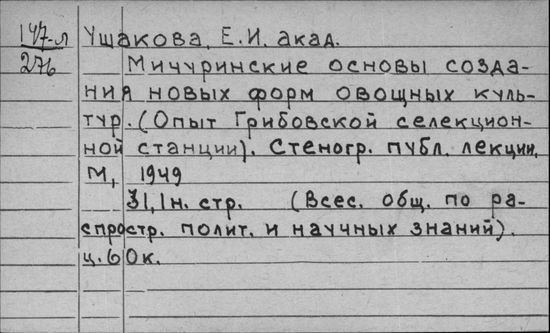 147-л Ушакова, Е.И. акад.
276 Мичуринские основы созда-
ния новых форм овощных куль-
тур. (Опыт Грибовской селекцион-
ной станции). Стеногр. публ. лекции.
М, 1949
31, 1 н. стр. (Всес. общ. по ра-
спростр. полит. и научных знаний).
ц. 60к.